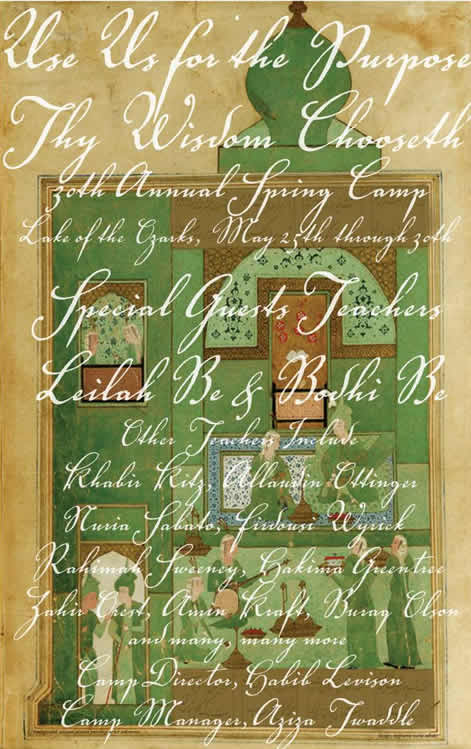 Use Us for the Purpose
Thy Wisdom Chooseth
30th Annual Spring Camp
Lake of the Ozarks, May 25th through 30th
Special Guests Teachers
Leilah Be & Bodhi Be
Other Teachers Include
Khabir Kitz, Allaudin Ottinger
Nuria Sabato, Firdousi Wyrick
Rahimah Sweeney, Hakima Greentree
Zahir Orest, Amin Kraft, Buraq Olson
and many, many more
Camp Director, Habib Levison
Camp Manager, Aziza Twaddle